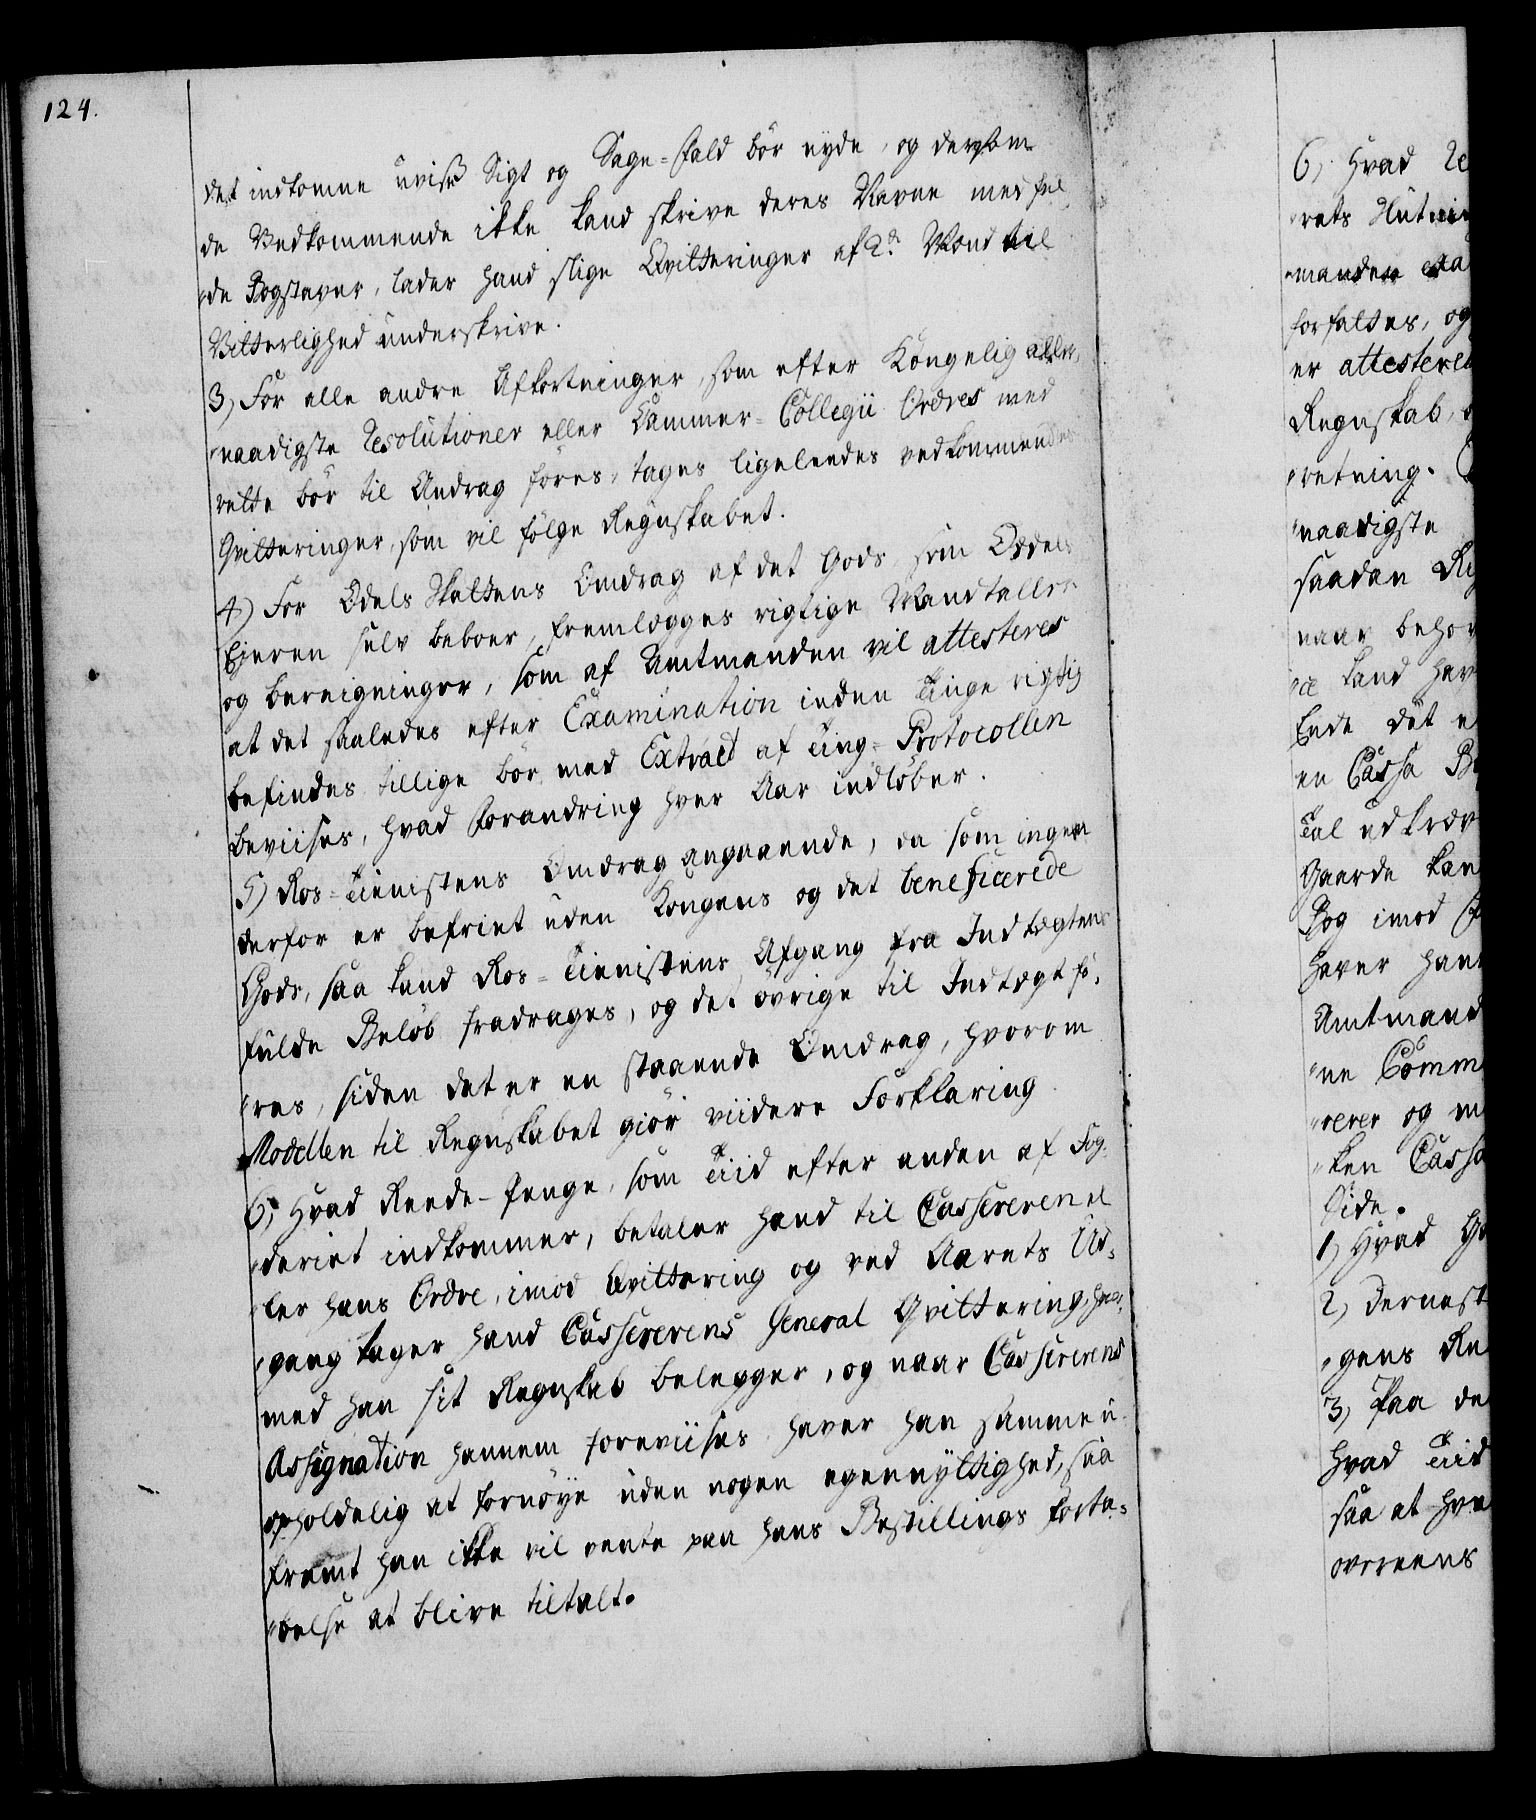 124.
det indkomne uviss Sigt og Sage-Fald bör nyde, og dersom
de Vedkommende ikke kand skrive deres Navne med ful
"de Bogstaver, lader hand slige Qvitteringer af 2de Mænd til
Vitterlighed underskrive.
3, For alle andre Afkortninger, som efter Kongelig aller,
"naadigste Resolutioner eller Cammer-Collegii Ordres med
rette bör til Andrag föres, tages ligeledes vedkommendes
Qvitteringer, som vil fölge Regnskabet.
4) For Odels Skattens Omdrag af det Gods, som Oddels
Ejeren selv beboer, fremlegges rigtige Mandtaller
og bereigninger, som af Amtmanden vil attesteres
at det saaledes efter Examination inden Tinge rigtig
befindes, tillige bör med Extract af Ting-Protocollen
beviises, hvad Forandring hver Aar indlöber.
5) Ros-Tienistens Omdrag angaaende, da som ingen
derfor er befriet uden Kongens og det beneficerede
Gods, saa kand Ros-Tienistens Afgang fra Indtægtens
fulde Belöb fradrages, og det övrige til Indtægt fö,
"res, siden det er en staaende Omdrag, hvorom
Modellen til Regnskabet giör viidere Forklaring
6, Hvad Reede-Penge, som Tiid efter anden af Fog,
"deriet indkommer, betaler hand til Cassereren el
"ler hans Ordre, imod Qvittering og ved Aarets Ud,
"gang tager hand Cassererens General Qvittering, hvor,
med han sit Regnskab belegger, og naar Cassererens
Assignation hannem foreviises haver han samme u,
opholdelig at fornöye uden nogen egennyttighed, saa
fremt han ikke vil vente paa hans Bestillings forta,
"belse at blive tiltalt.
6, Hvad
"rets
"manden
forfaltes, og
er attesteret
Regnskab,
"retning.
"naadigste
saadan
naar behov
kand hav
Ende det
en Cassa
Tal udkræv
Gaarde kan
Bog imod
haver han
Amtmand
"ne Comm
"rerer og
"ken Cassa
Side.
1, Hvad
2, dernest
"gens
3, Paa de
hvad Tiid
saa at hve
overeens